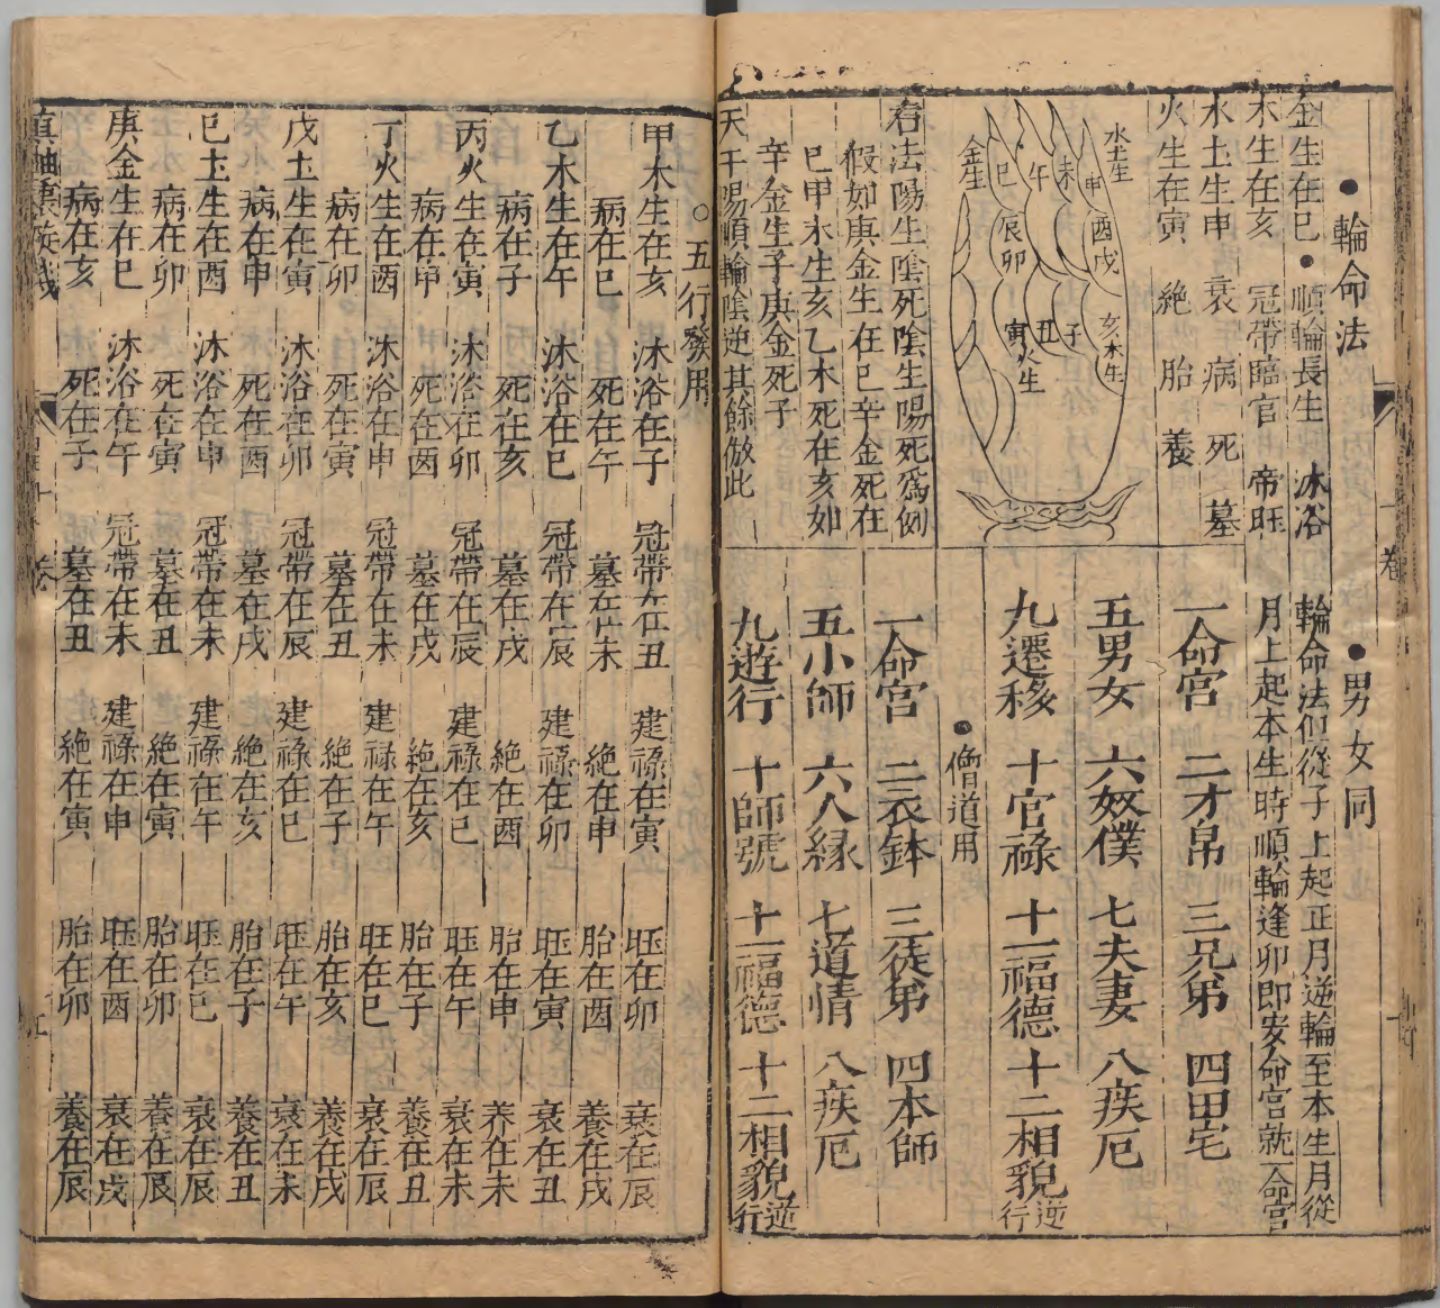 ●輪命法
金生在巳●順輪長生 沐浴
木生在亥 冠帶臨官 帝旺
水土生申 衰 病 死 墓
火生在寅 絶 胎 養
水土生
金生
巳
午
未
申
辰
酉
卯
戌
寅
丑
子
亥木生
火生
看法陽生陰死陰生陽死爲例
假如庚金生在巳辛金死在
巳甲木生亥乙木死在亥如
辛金生子庚金死子
天干陽順輪陰逆其餘倣此
●男女同
輪命法但從子上起正月逆輪至本生月從
月上起本生時順輪逢卯即安命宮就一命宮
一命宮 二才帛 三兄弟 四田宅
五男女 六奴僕 七夫妻 八疾厄
九遷移 十官祿 十一福德 十二相貌逆行
●僧道用
一命宮 二衣鉢 三徒弟 四本師
五小師 六人緣 七道情 八疾厄
九遊行 十師號 十一福德 十二相貌逆行
○五行發用
甲木生在亥 沐浴在子 冠帶在丑 建祿在寅 旺在卯 衰在辰
病在巳 死在午 墓在未 絶在申 胎在酉 養在戌
乙木生在午 沐浴在巳 冠帶在辰 建祿在卯 旺在寅 衰在丑
病在子 死在亥 墓在戌 絶在酉 胎在申 养在未
丙火生在寅 沐浴在卯 冠帶在辰 建祿在巳 旺在午 衰在未
病在申 死在酉 墓在戌 絶在亥 胎在子 養在丑
丁火生在酉 沐浴在申 冠帶在未 建祿在午 旺在巳 衰在辰
病在卯 死在寅 墓在丑 絶在子 胎在亥 養在戌
戊土生在寅 沐浴在卯 冠帶在辰 建祿在巳 旺在午 衰在未
病在申 死在酉 墓在戌 絶在亥 胎在子 養在丑
巳土生在酉 沐浴在申 冠帶在未 建祿在午 旺在巳 衰在辰
病在卯 死在寅 墓在丑 絶在寅 胎在卯 養在辰
庚金生在巳 沐浴在午 冠帶在未 建祿在申 旺在酉 衰在戌
病在亥 死在子 墓在丑 絶在寅 胎在卯 養在辰